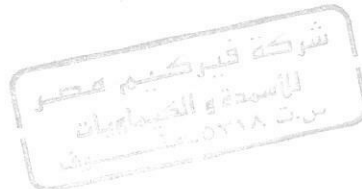 شركة فيركيم مصر
للأسمدة و الكيماويات
س.ت ٥٧١٨